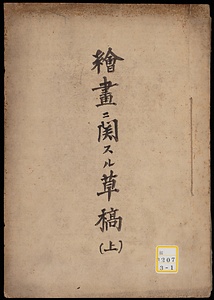 繪畫ニ関スル草稿
(上)
207
3-1